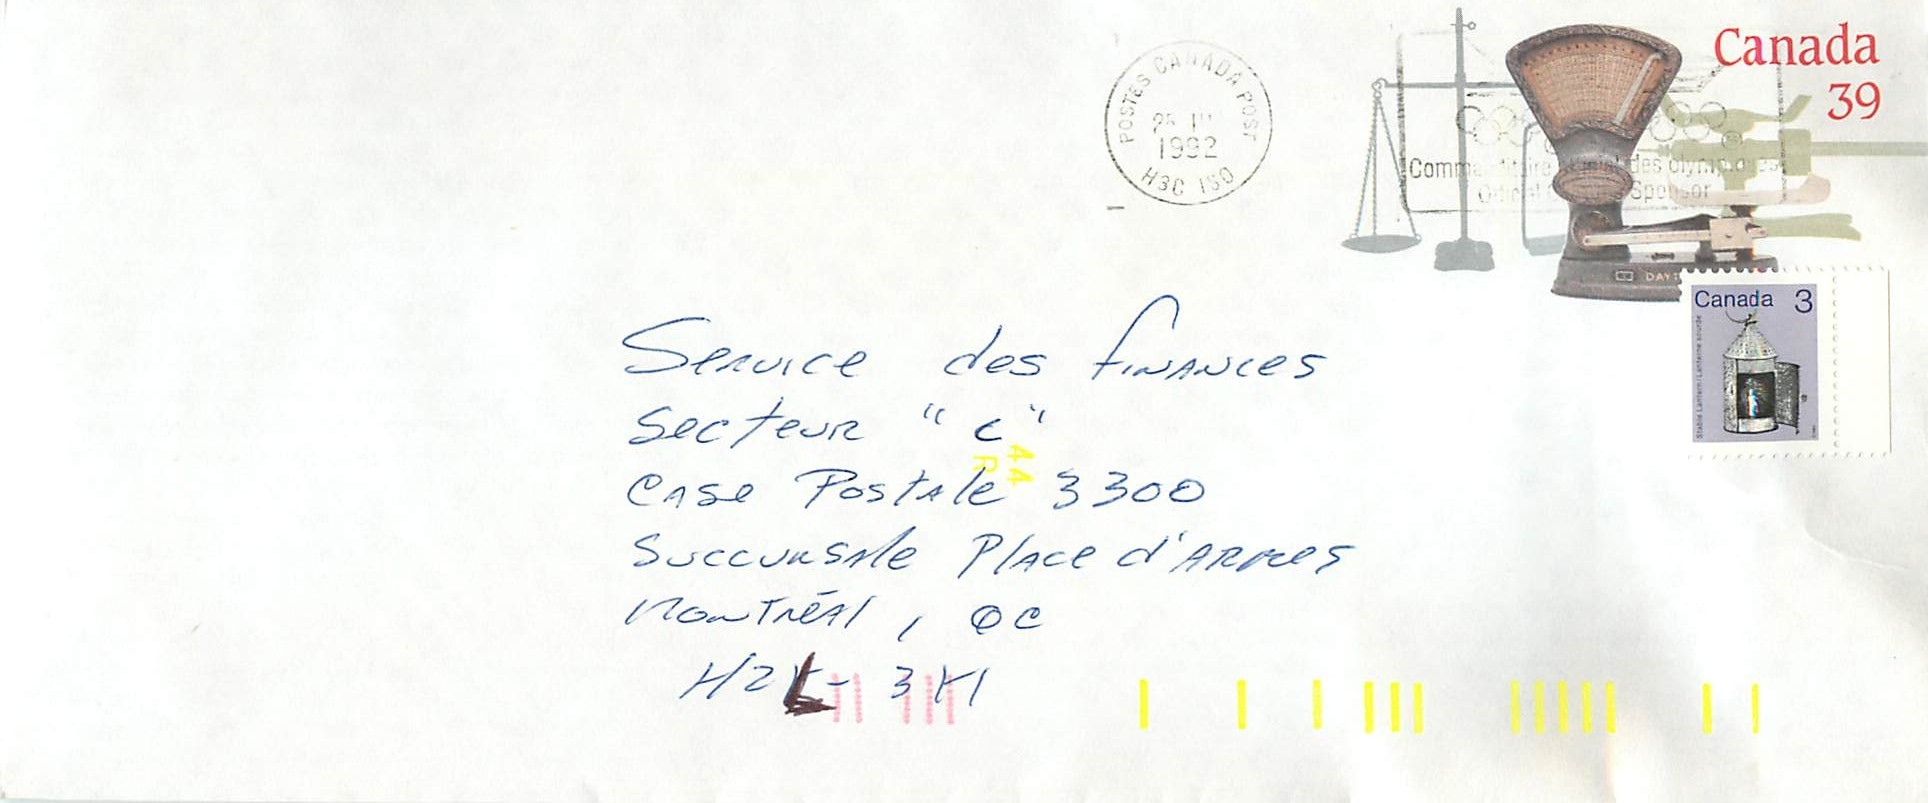 Canada
39
POSTES CANADA POST
1992
H3C 1S0
Commanditaire des olympiques
Sponsor
DAYT
Canada 3
Stable Lantern/Lanterne sourde
Service des finances
Secteur "C"
44
R
Case Postale 3300
Succursale Place d'Armes
Montréal, QC
H2Y- 3K1